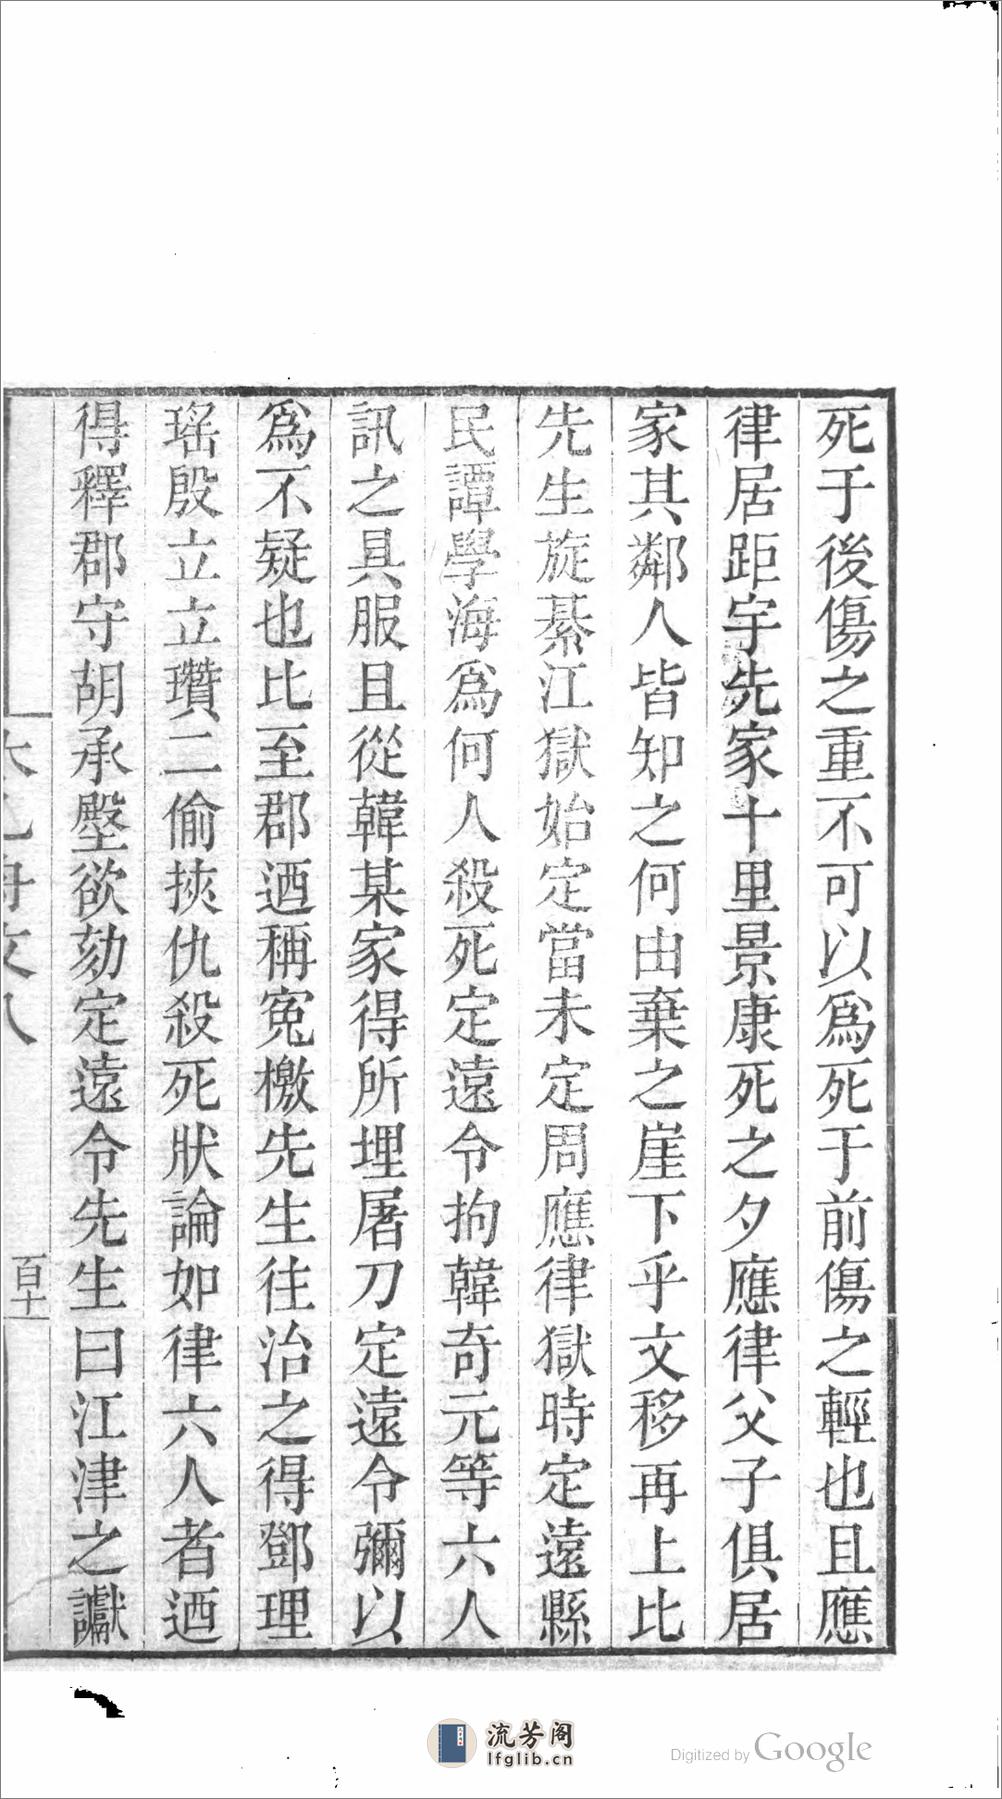 死于後傷之重不可以爲死于前傷之輕也且應
律居距宇先家十里景康死之夕應律父子俱居
家其鄰人皆知之何由棄之崖下乎文移再上比
先生旋綦江獄始定當未定周應律獄時定遠縣
民譚學海爲何人殺死定遠令拘韓奇元等六人
訊之具服且從韓某家得所埋屠刀定遠令彌以
爲不疑也比至郡迺稱冤檄先生往治之得鄧理
瑤殷立立瓚二偷挾仇殺死狀論如律六人者迺
得釋郡守胡承壂欲劾定遠令先生曰江津之讞
百十
流芳阁
lfglib.cn
Digitized by Google